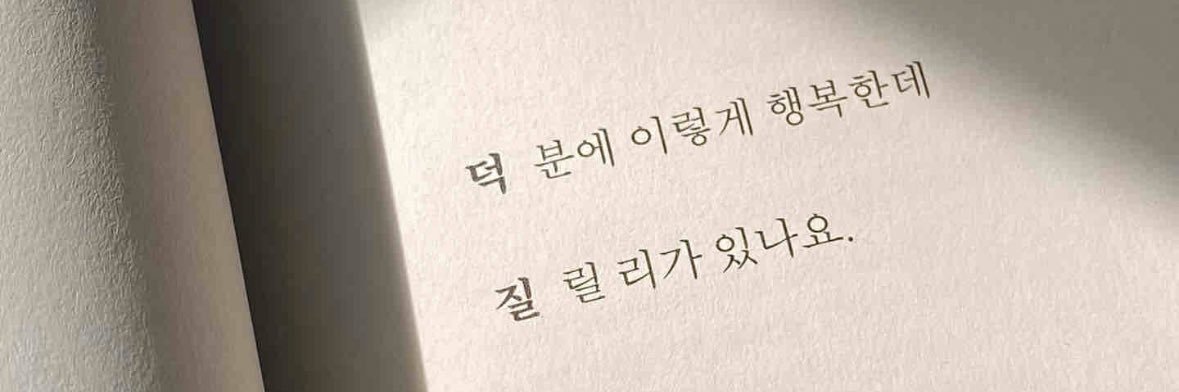 덕 분에 이렇게 행복한데
질 릴 리가 있나요.